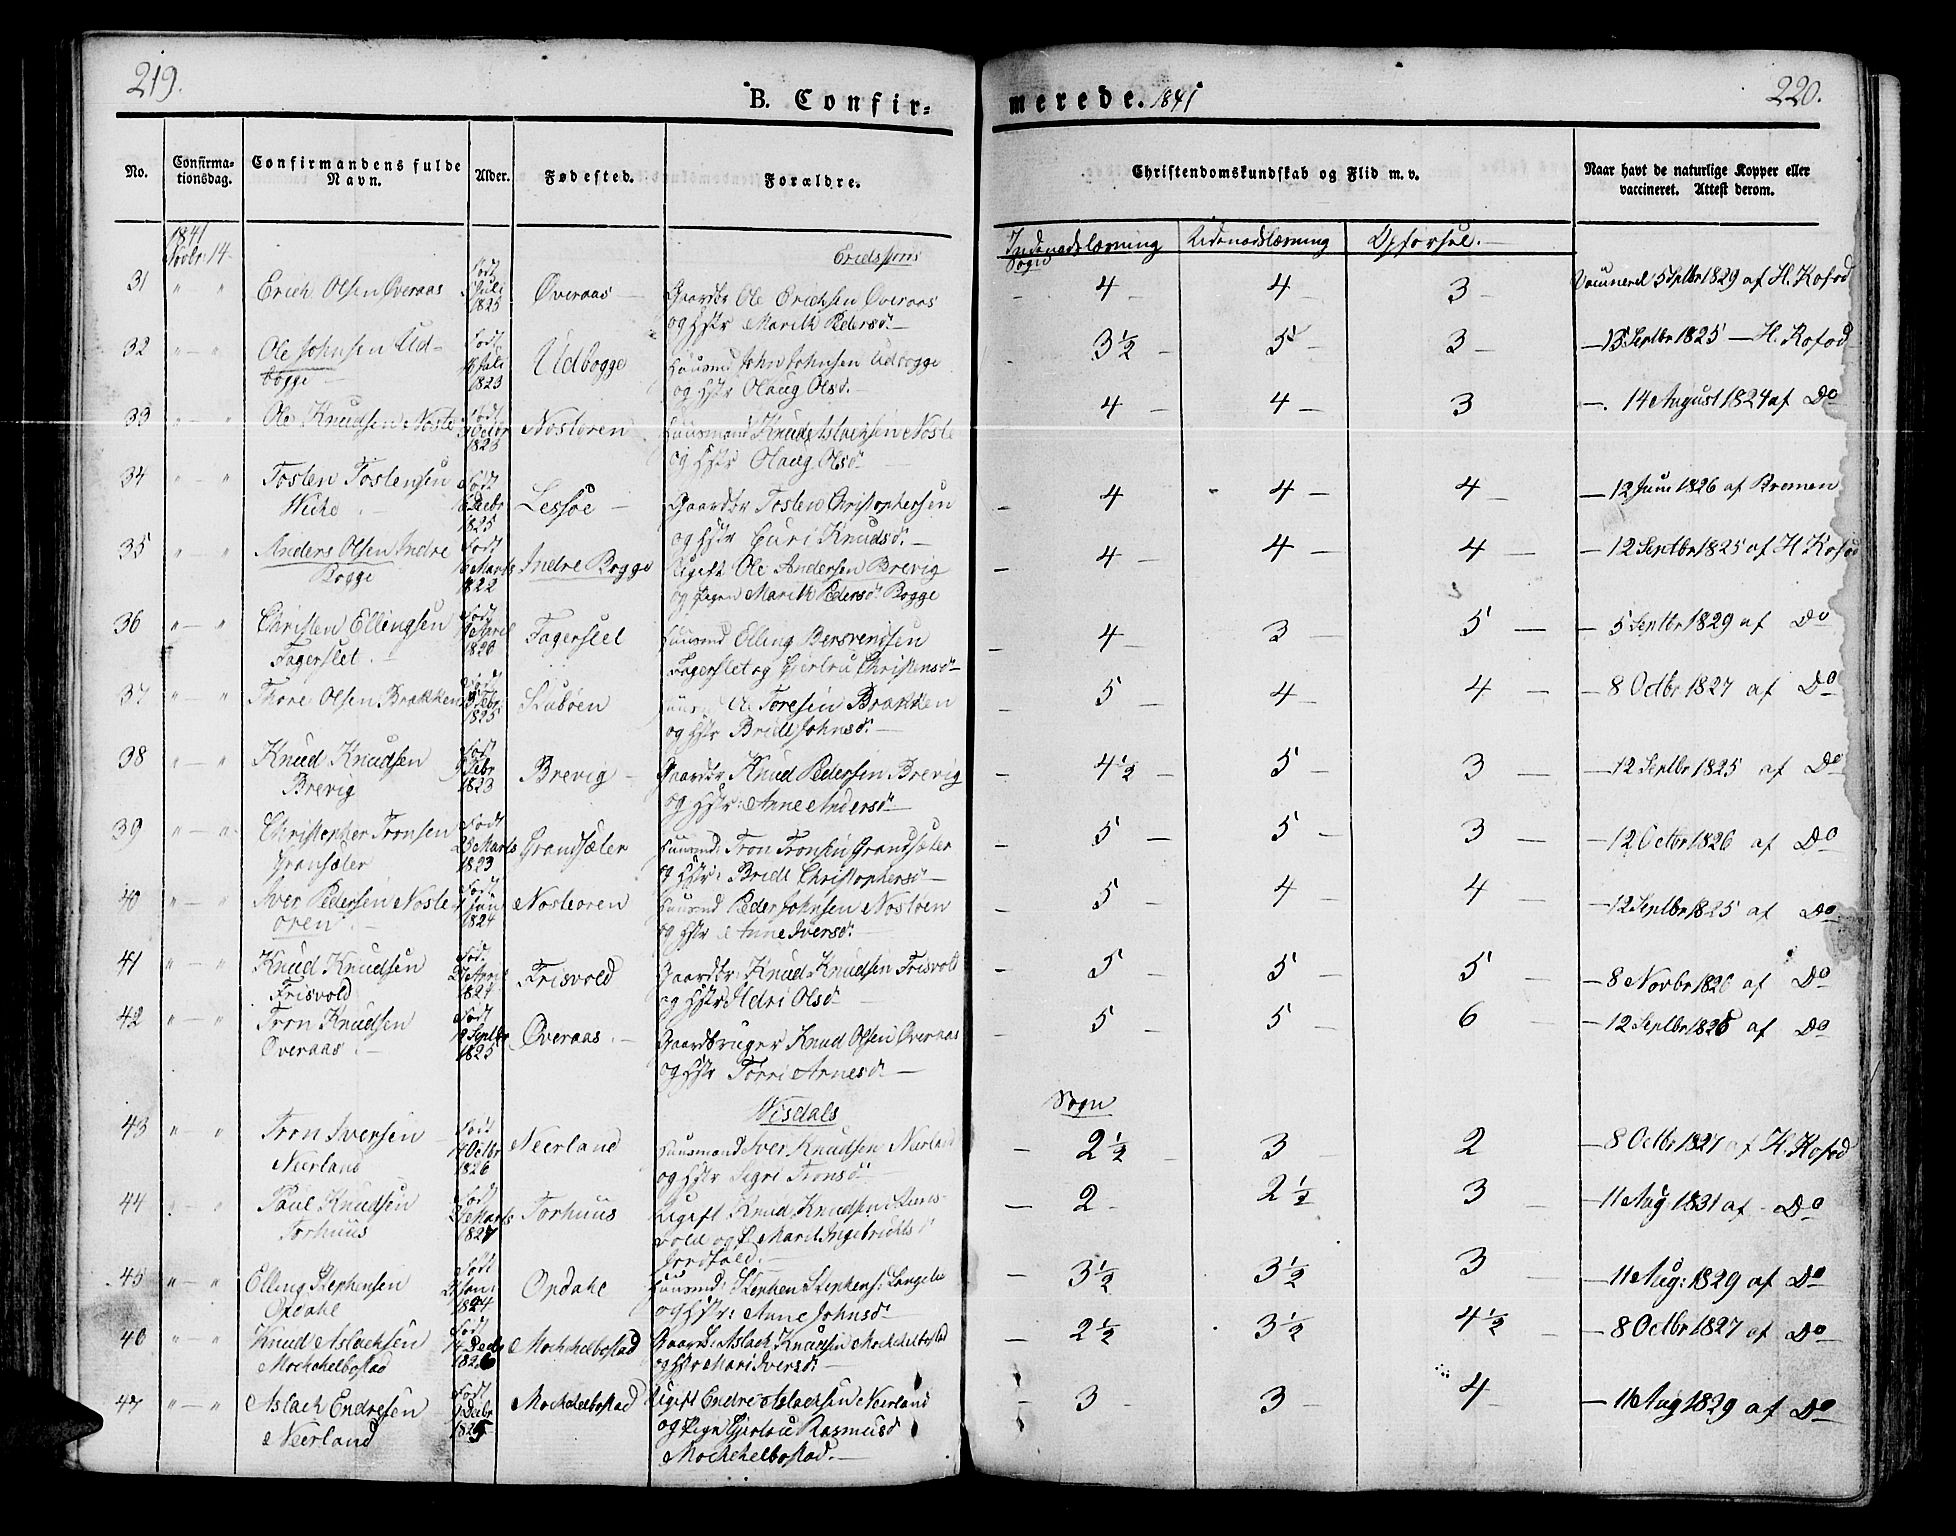 219.
B. Confir=
merede. 1841
220.
No.
Confirma-
tionsdag.
Confirmandens fulde
Navn.
Alder.
Fødested.
Forældre.
Christendomskundskab og Flid m. v.
Naar havt de naturlige Kopper eller
vaccineret. Attest derom.
1841
Novbr: 14
Eridsfjords
Sogn
Indenadslæsning
Udenadslæsning
Opførsel.
31 " — " Erich Olsen Øveraas Født Juli 1825 Øveraas — Gaardbr Ole Erichsen Øveraas
og Hstr Marith Pedersd. —
4 — 4 — 3 — Vaccineret 5 Septbr 1829 af H. Kofod
32 " — " Ole Johnsen Ud-
bogge — Født Juli 1823 Udbogge Huusmd John Johnsen Udbogge
og Hstr Olaug Olsd. —
3½ — 5 — 3 — — 13 Septbr 1825 — H. Kofod
33 " — " Ole Knudsen Noste Født Octbr 1823 Nostoren Huusmand Knud Aslachsen Noste
og Hstr Olaug Olsd —
4 — 4 — 3 —. 14 August 1824 af Do
34 " — " Tosten Tostensen
Født Decbr 1825 Lessøe — Gaardbr Tosten Christophersen
og Hstr Guri Knudsd. —
4 4 — 4 — — 12 Juni 1826 af Bremen
35 " — " Anders Olsen Indre
Bogge Født Marts 1822 Indre Bogge Ugift Ole Andersen Brevig
og Pigen Marith Pedersd. Bogge
4 — 4 — 4 — — 12 Septbr 1825 af H Kofod
36 " — " Christen Ellingsen
Fagerslet. — Født 1826 Fagerslet Huusmd Elling Bersvendsen
Fagerslet og Gjertru Christensd —
4 — 3 — 5 — — 5 Septbr 1829 af Do
37 " — " Thore Olsen Brakken Født Febr: 1825 Stubøen Huusm Ole Toresen Brakken
og Hstr Bridt Johnsd. —
5 — 4 — 4 — — 8 Octbr 1827 af Do
38 " — " Knud Knudsen
Brevig Født Febr 1823 Brevig — Gaardbr Knud Pedersen Brevig
og Hstr: Anne Andersd —
4½ — 5 — 3 — — 12 Septbr 1825 af Do
39 " — " Christopher Tronsen
Gransæter Født 25 Marts 1823 Grandsæter Huusmd: Tron Tronsen Grandsæter
og Hstr: Bridt Christophersd —
5 — 5 — 3 — — 12 Octbr 1826 af Do
40 " — " Iver Pedersen Noste
oren. — Født Jan 1824 Nosteoren Huusmd Peder Johnsen Nostøen
og Hstr Anne Iversd.
5 — 4 — 4 — — 12 Septbr 1825 af Do
41 " — " Knud Knudsen
Frisvold Født 27 April 1824 Frisvold Gaardbr: Knud Knudsen Frisvold
og Hstr Olsd —
5 — 5 — 5 — — 8 Novbr 1826 af Do
42 " — " Tron Knudsen
Øveraas. — Født 19 Septbr 1825 Øveraas. — Gaardbruger Knud Olsen Øveraas
og Hstr Torri Arnesd. —
5 — 5 — 6 — — 12 Septbr 1826 af Do
Visdals
Sogn
43 " — " Tron Iversen
Neerland Født 14 Octbr 1826 Neerland Huusmand Iver Knudsen Neerland
og Hstr Sigri Tronsd —
2½ — 3 — 2 — 8 Octbr 1827 af H. Kofod
44 " — " Paul Knudsen
Torhuus Født Marts 1827 Torhuus Ugift Knud Knudsen
og P. Marit Ingebrichtsd
2 — 2½ 3 — — 11 Aug 1831 af Do
45 " — " Elling Stephensen
Opdahl Født Jan: 1824 Opdahl Huusmd: Stephen Stephens:
og Hstr: Anne Johnsd —
3½ 3½ 3 — 11 Aug: 1829 af Do
46 " — " Knud Aslachsen
Mochelbostad Født 14 Decbr 1826 Mochelbostad Gaardb: Aslach Knudsen Mochelbostad
og Hstr Mari Iversd: —
2½ — 3½ — 4½ — — 8 Octbr 1827 af Do
47 " — " Aslach Endresen
Neerland Født Decbr 1825 Mochelbostad Ugift Endre Aslachsen Neerland
og Pigen Gjertru Rasmusd
Mochelbostad. —
3 — 3 — 4 — — 16 Aug 1829 af Do